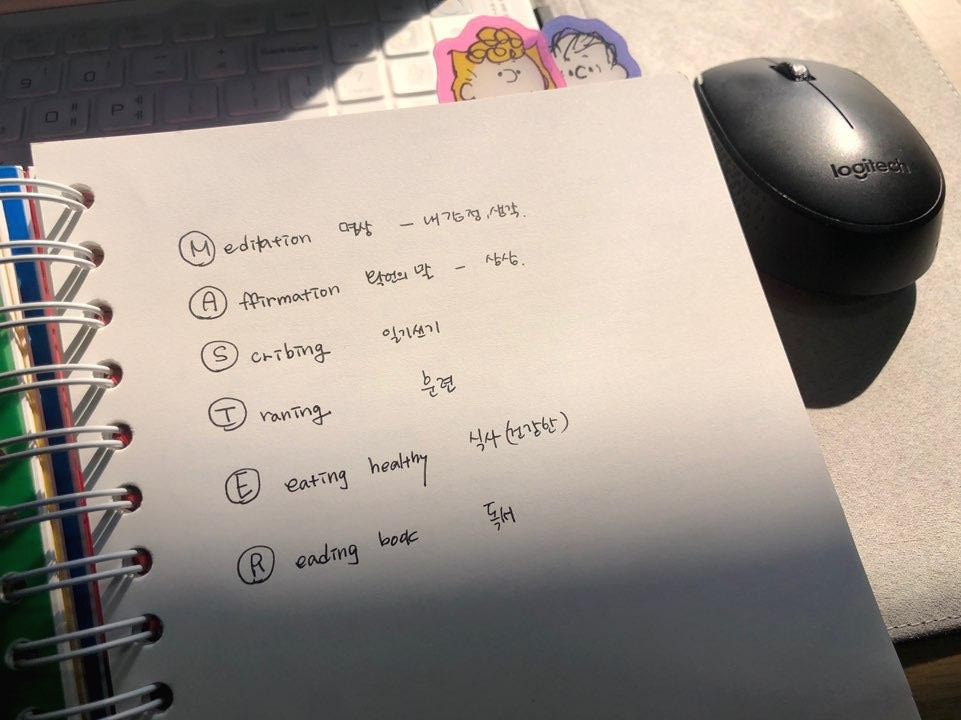 9 0 -
O ㅐ P ㅔ
logitech
Meditation 명상 - 내 감정, 생각.
Affirmation 확언의 말 - 상상.
Scribing 일기쓰기
Traning 훈련
E eating healthy 식사(건강한)
Reading book 독서